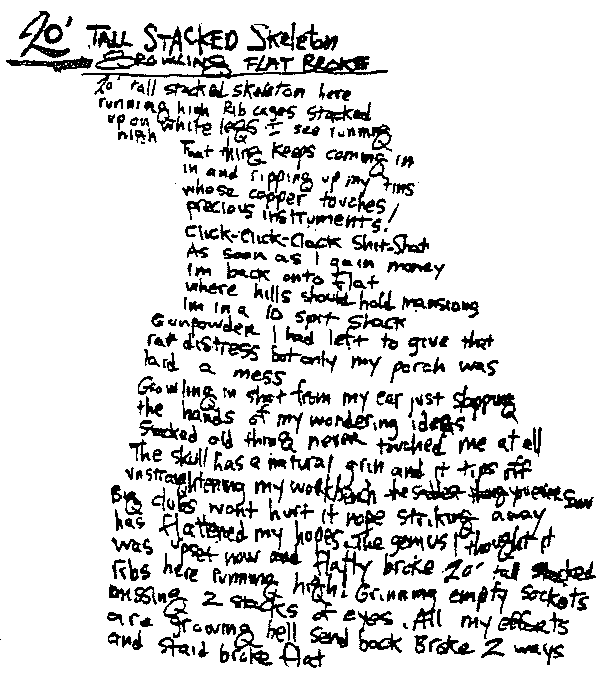 20' TALL STACKED Skeleton
GROWLING FLAT BROKE
20' tall stacked skeleton here
running high Rib cages stacked
upon white legs I see running
high
That thing keeps coming in
in and ripping up my tins
whose copper touches
precious instruments!
Click-Click-Clack Shit-Shat
As soon as I gain money
Im back onto flat
where hills should hold mansions
Im in a 10 spit shack
Gunpowder I had left to give that
rat distress but only my porch was
laid a mess
Growling in shot from my ear just stopping
the hands of my wondering ideas
Stacked old thing never touched me at all
The skull has a natural grin and it tips off
unstraightening my workbench the ever saw
Big clubs wont hurt it nope striking away
has flattered my hopes. The genius I thought it
was upset now and flatly broke 20' tall stacked
ribs here running high. Grinning empty sockets
missing 2 stacks of eyes. All my efforts
are growing hell send back Broke 2 ways
and staid broke flat